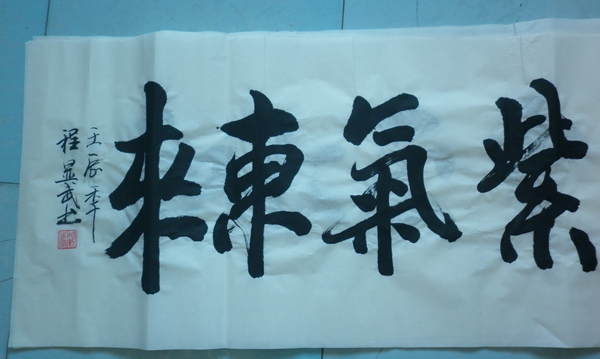 紫氣東來
壬辰年
程显武书